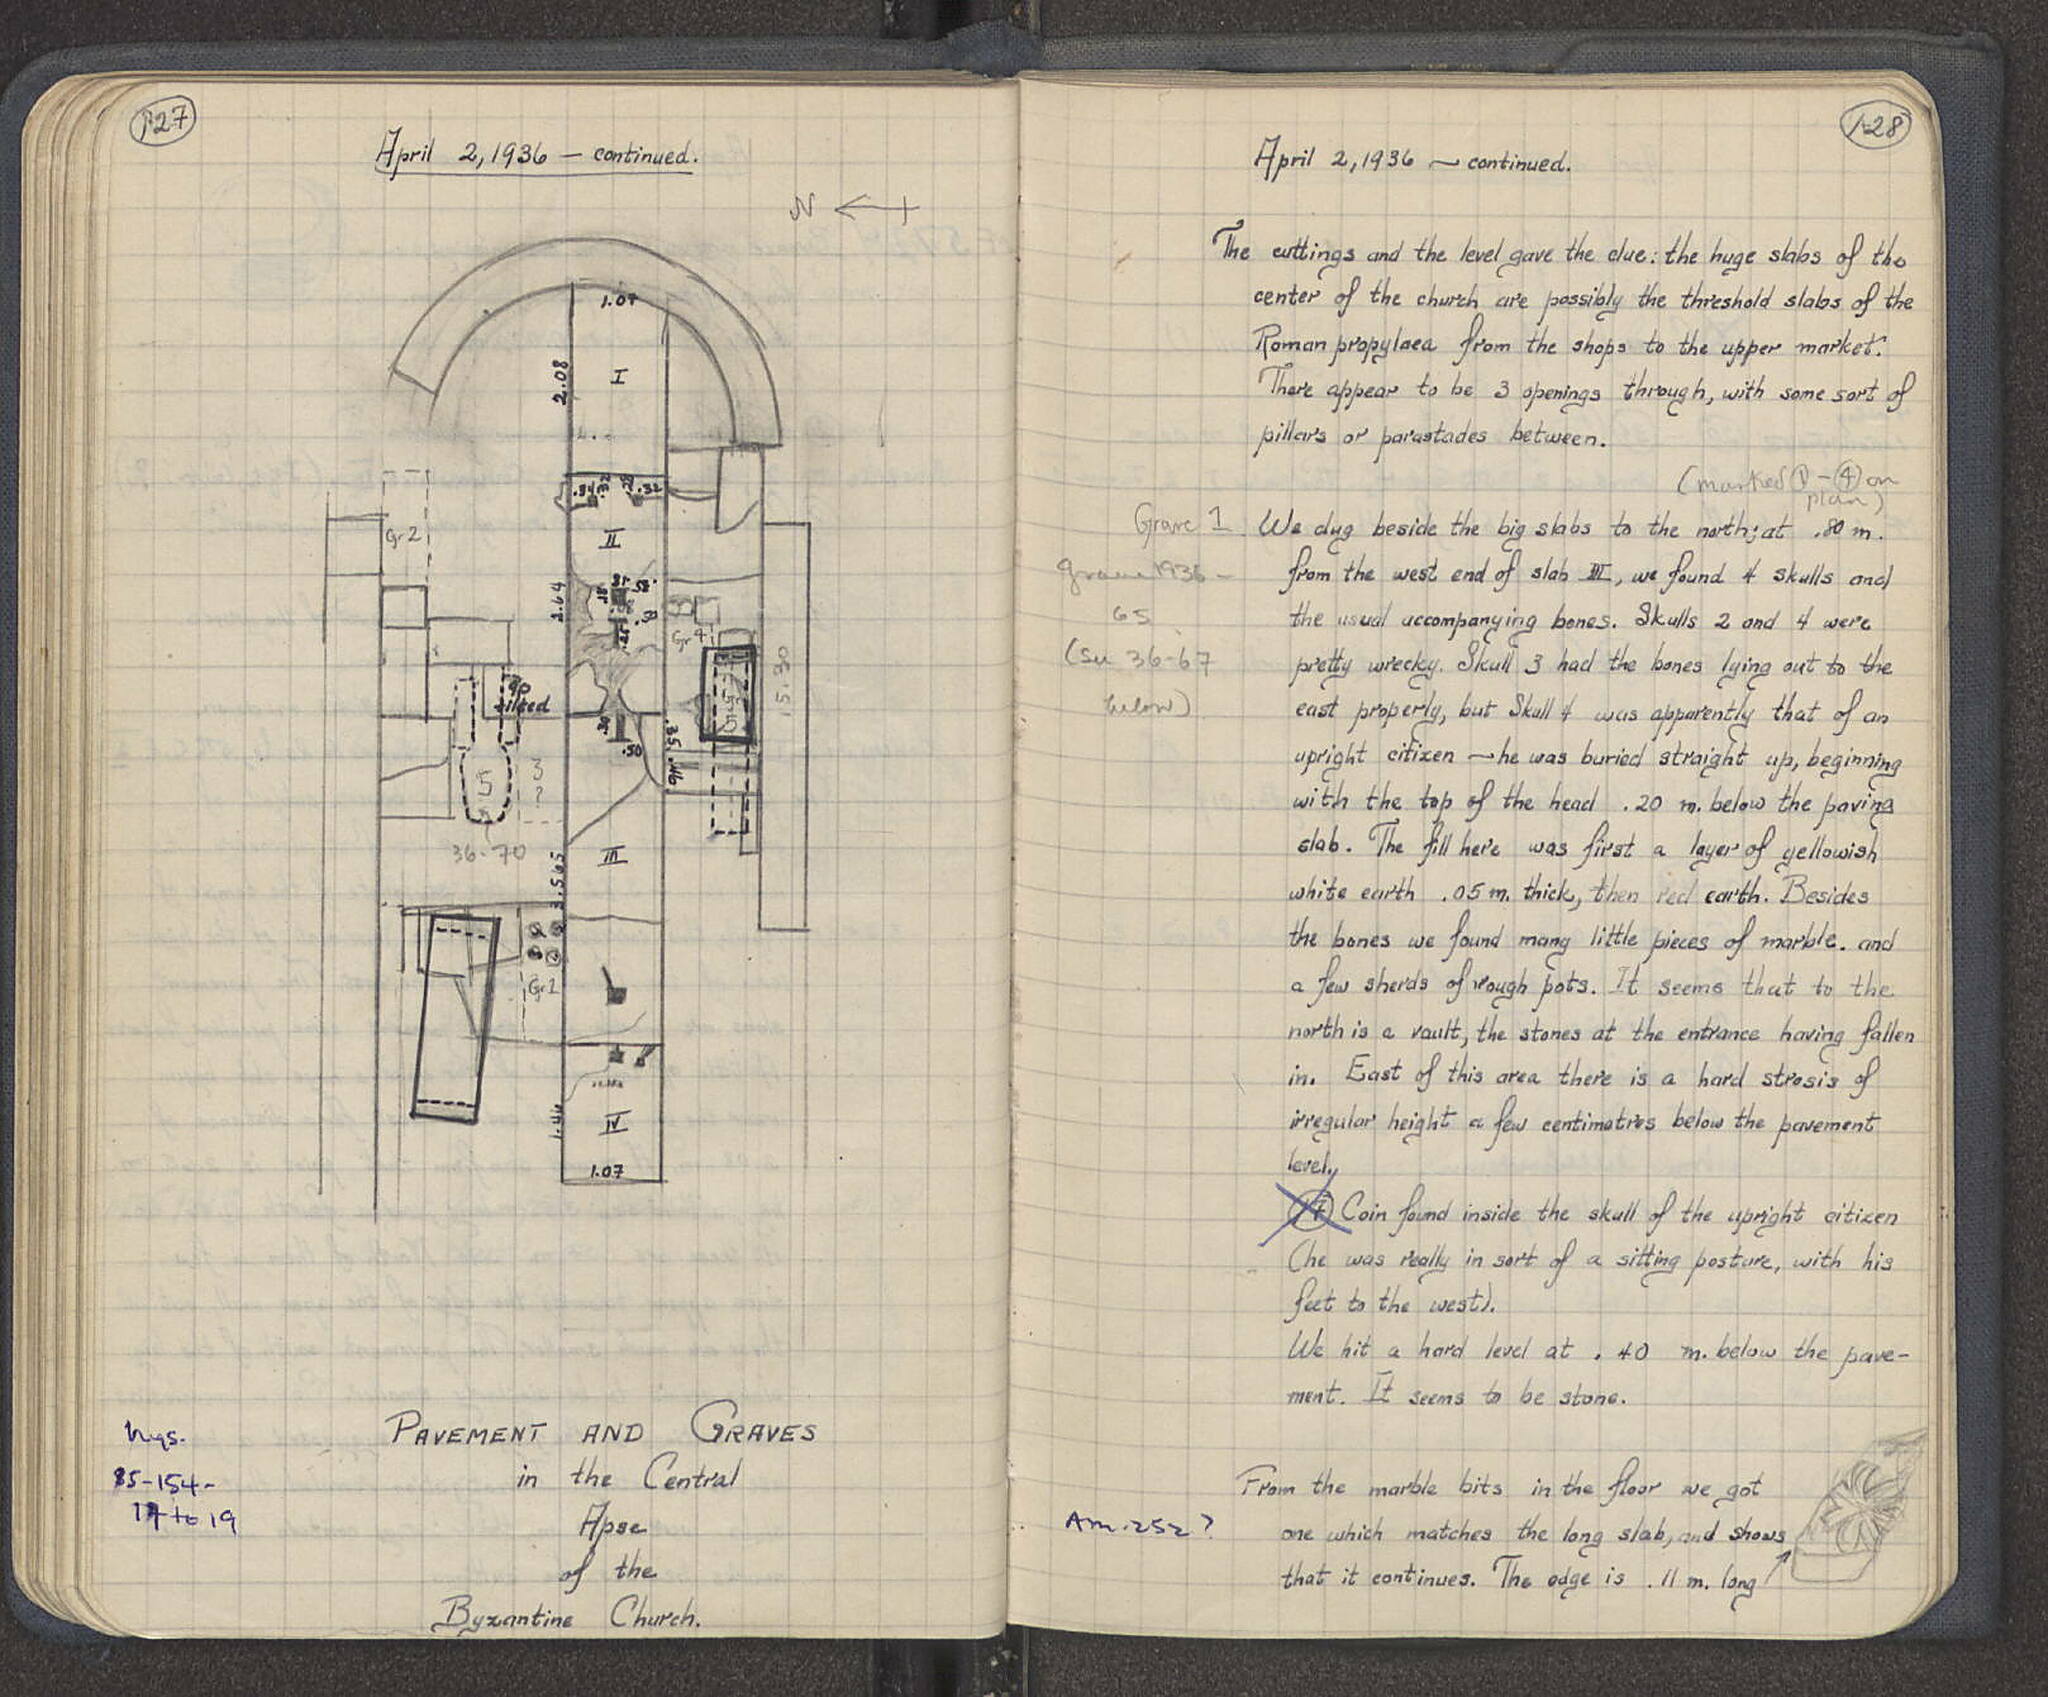 127
April 2, 1936 — continued.
N
1.07
2.08
I
.32
II
Gr 2
2.64
.50
Gr 4
up
tilted
15.30
.50
.35
.46
5
3
?
36-70
3.565
III
Gr 1
1.46
IV
1.07
PAVEMENT AND GRAVES
in the Central
Apse
of the
Byzantine Church.
85-154-
to 19
128
April 2, 1936 — continued.
The cuttings and the level gave the clue: the huge slabs of the
center of the church are possibly the threshold slabs of the
Roman propylaea from the shops to the upper market.
There appear to be 3 openings through, with some sort of
pillars or parastades between.
(marked 1 - 4 on
plan)
Grave 1
We dug beside the big slabs to the north; at .80 m.
grave 1936 -
65
(see 36-67
below)
from the west end of slab III, we found 4 skulls and
the usual accompanying bones. Skulls 2 and 4 were
pretty wrecky. Skull 3 had the bones lying out to the
east properly, but Skull 4 was apparently that of an
upright citizen — he was buried straight up, beginning
with the top of the head .20 m. below the paving
slab. The fill here was first a layer of yellowish
white earth .05 m. thick, then red earth. Besides
the bones we found many little pieces of marble. and
a few sherds of rough pots. It seems that to the
north is a vault, the stones at the entrance having fallen
in. East of this area there is a hard strosis of
irregular height a few centimetres below the pavement
level.
Coin found inside the skull of the upright citizen
(he was really in sort of a sitting posture, with his
feet to the west).
We hit a hard level at .40 m. below the pave-
ment. It seems to be stone.
From the marble bits in the floor we got
AM.252?
one which matches the long slab, and shows
that it continues. The edge is .11 m. long